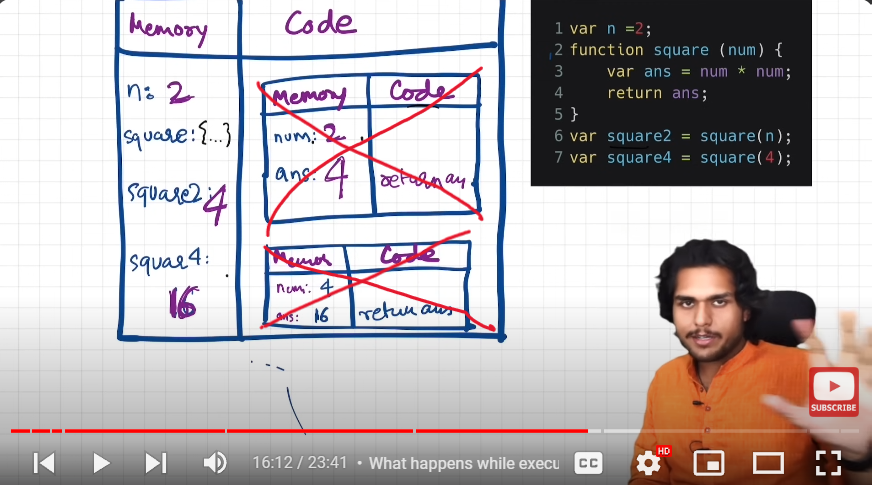 Memory
Code
n: 2
square: {...}
square2: 4
squar4:
16
Memory
Code
num: 2
ans: 4
return an
Memor
Code
num: 4
ans: 16
return ans
1 var n =2;
2 function square (num) {
3 var ans = num * num;
4 return ans;
5 }
6 var square2 = square(n);
7 var square4 = square(4);
SUBSCRIBE
16:12 / 23:41 • What happens while execu
CC
HD